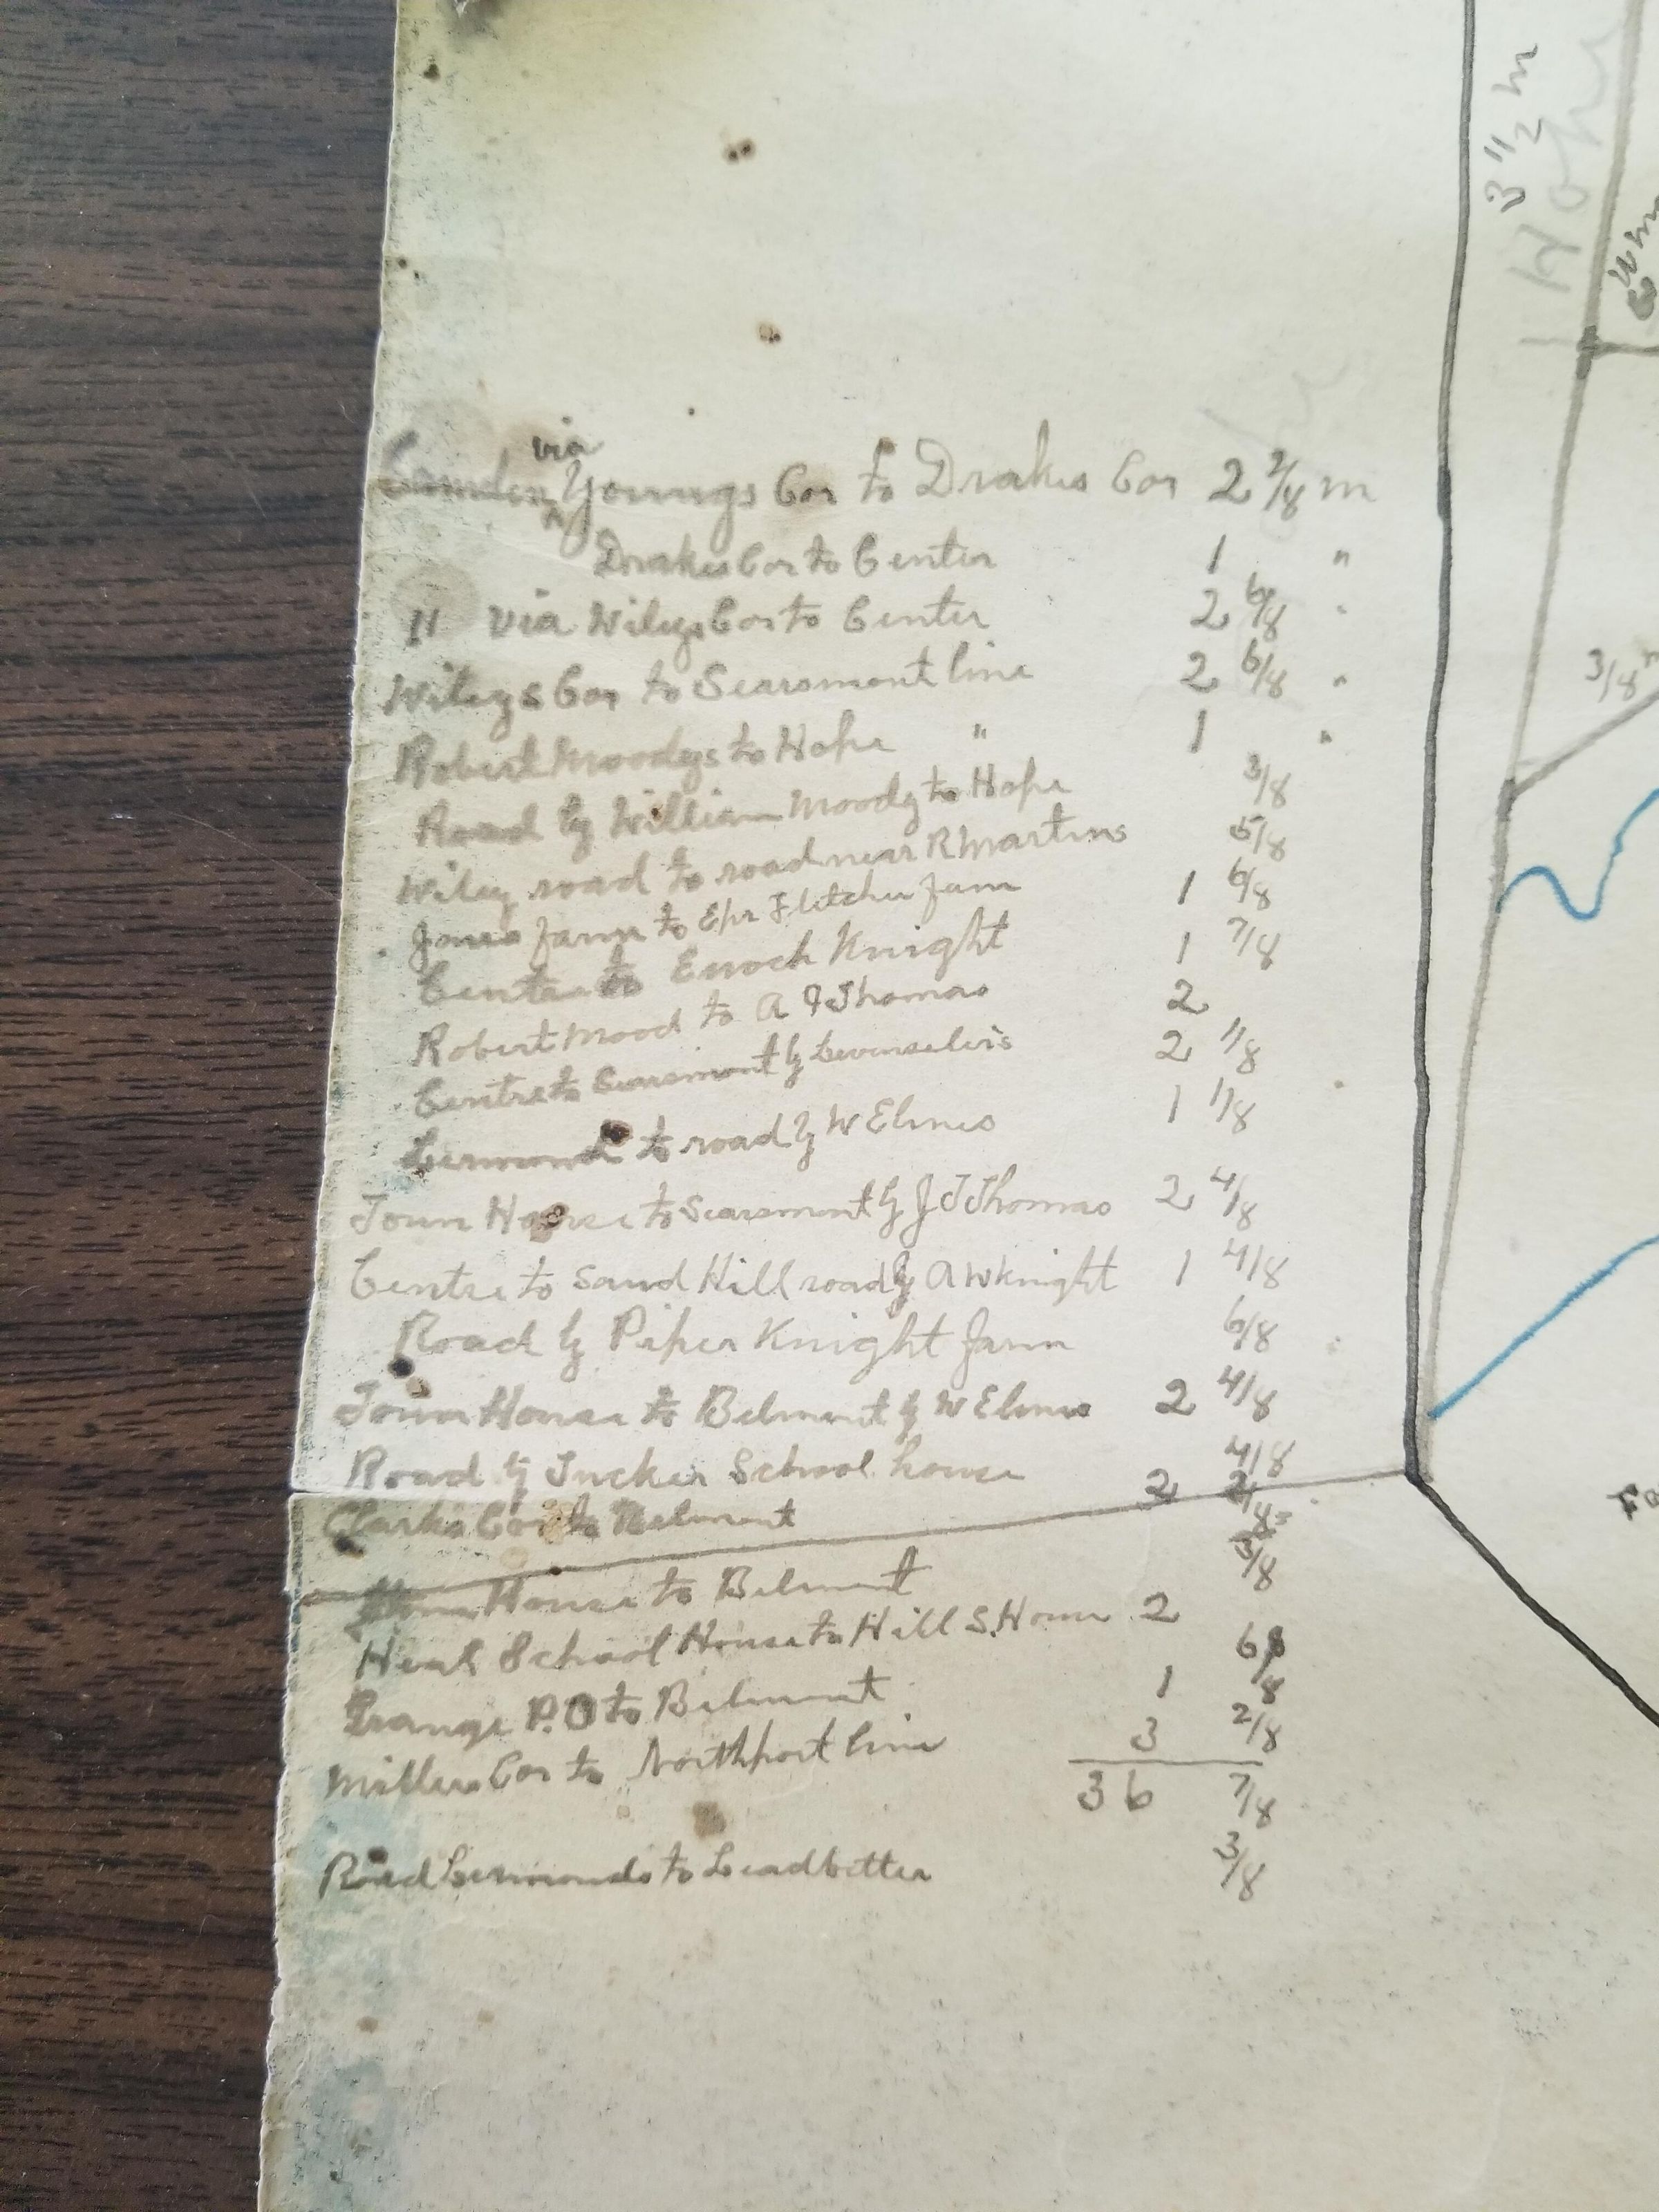 via
Camden Youngs Cor to Drakes Cor 2 2/8 m
Drakes Cor to Center 1 "
" via Wileys Cor to Center 2 6/8 "
Wileys Cor to Searsmont line 2 6/8 "
Robert Moodys to Hope " 1 "
Road by William Moody to Hope 3/8
Wiley road to road near R Martins 5/8
Jones farm to Epr Fletcher farm 1 6/8
Centre to Enoch Knight 1 7/8
Robert Mood to A J Thomas 2
Centre to Searsmont by Levenselers 2 1/8
to road by W Elmes 1 1/8
Town House to Searsmont by J J Thomas 2 4/8
Centre to Sand Hill road by A W Knight 1 4/8
Road by Piper Knight farm 6/8
Town House to Belmont by W Elmes 2 4/8
Road by Tucker School house 4/8
Clarks Cor to Belmont 2 2/8
House to Belmont 3/8
Heal School House to Hill S. House 2
Grange P.O to Belmont 1 6/8
Millers Cor to Northport line 3 2/8
36 7/8
Road Lermonds to Leadbetter 3/8
3 1/2 m
Hope
3/8